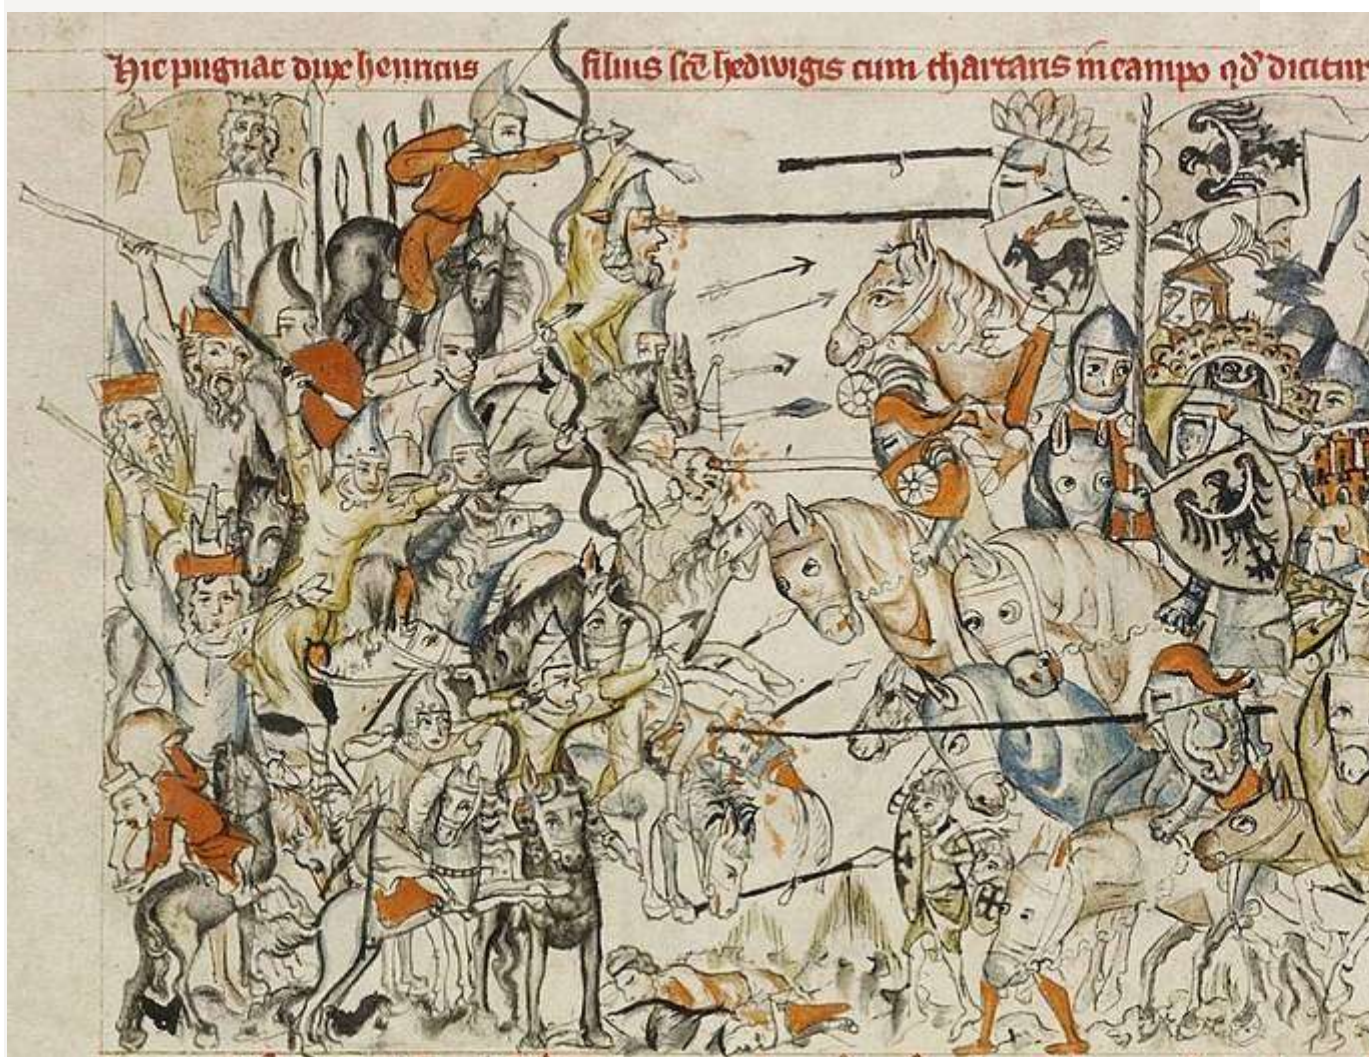 Hic pugnat dux henricus filius scē hedwigis cum thartaris in campo qd' dicitur